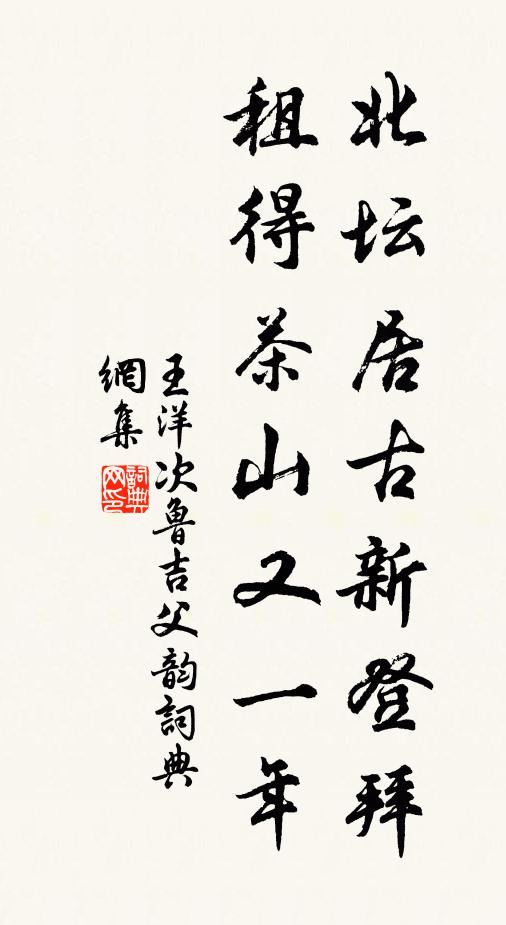 北坛居古新登拜
租得茶山又一年
王洋次鲁吉父韵詞典
網集
詞典网印